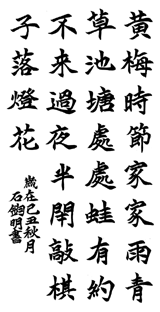 黃梅時節家家雨青
草池塘處處蛙有約
不來過夜半閑敲棋
子落燈花
歲在己丑秋月
石明書